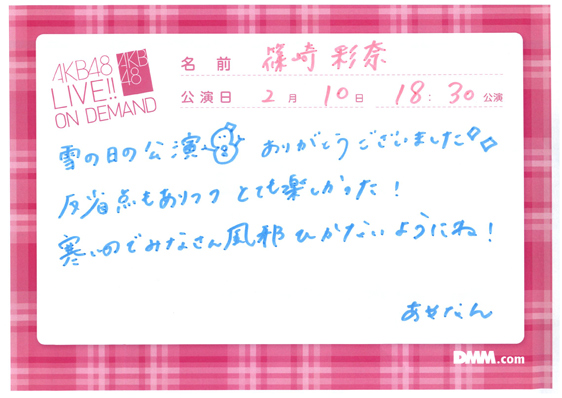 AKB48
LIVE!!
ON DEMAND
AKB
48
名前 篠崎 彩奈
公演日 2月 10日 18:30公演
雪の日の公演 ありがとうございました
反省点もありつつ とても楽しかった！
寒いのでみなさん風邪ひかないようにね！
あやなん
DMM.com